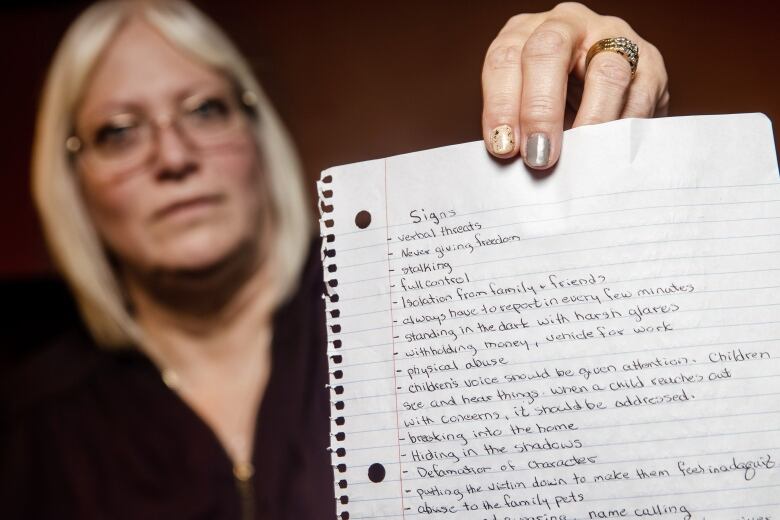 Signs
- verbal threats
- Never giving freedom
- stalking
- full control
- Isolation from family + friends
- always have to report in every few minutes
- standing in the dark with harsh glares
- withholding money, vehicle for work
- physical abuse
- children's voice should be given attention. Children
see and hear things. when a child reaches out
with concerns, it should be addressed.
- breaking into the home
- Hiding in the shadows
- Defamation of Character
- putting the victim down to make them feel inadaquit
- abuse to the family pets
name calling